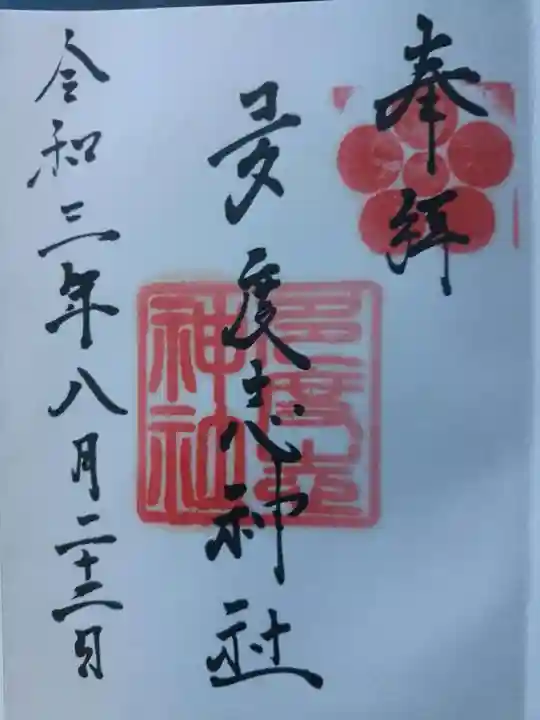 奉拝
多度志神社
多度志神社
令和三年八月二十二日